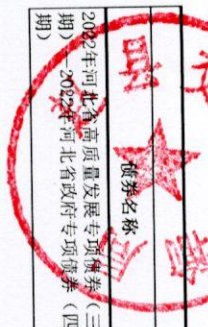 债券名称
2022年河北省高质量发展专项债券（三
期）—2022年河北省政府专项债券（四
期）